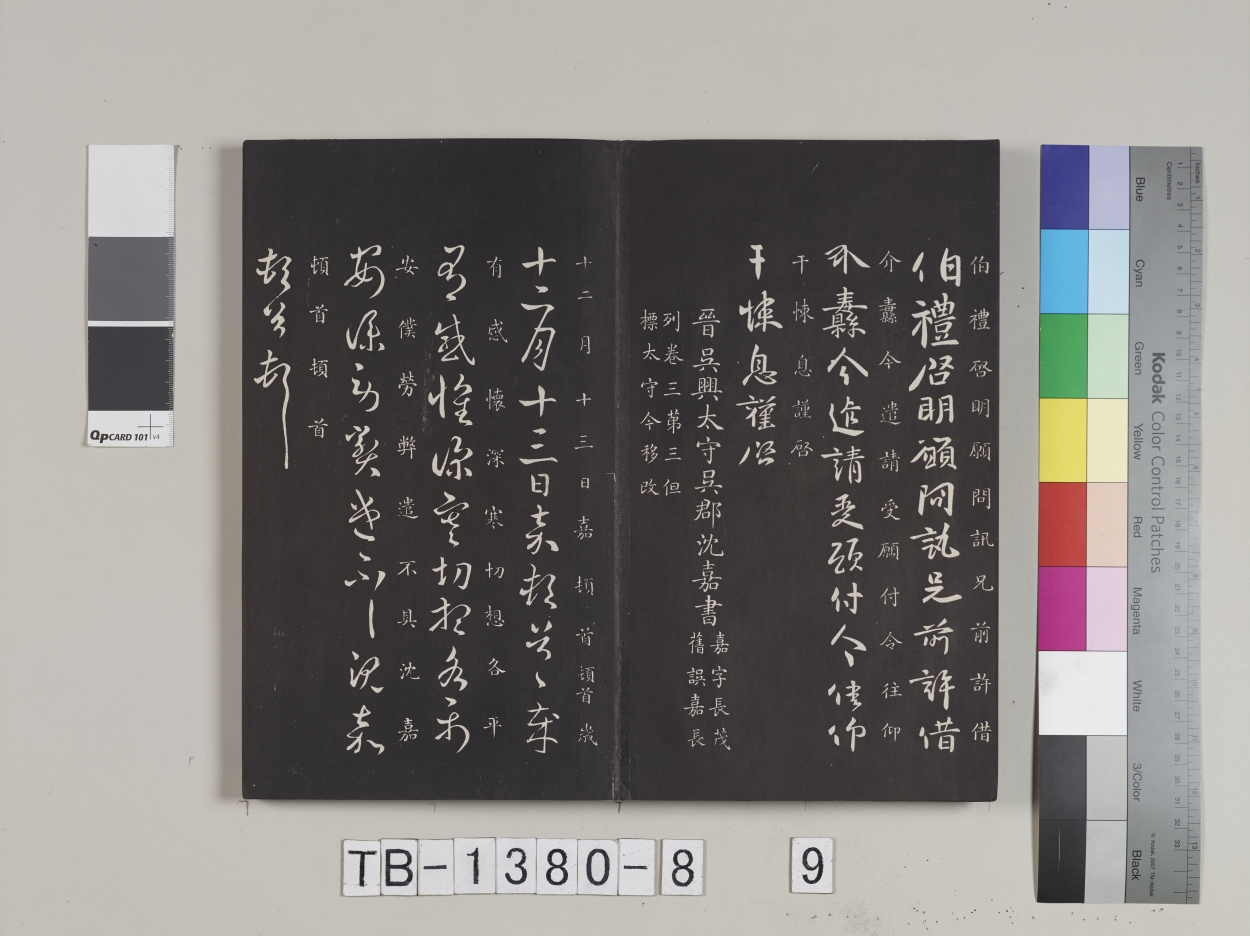 伯禮啓明願問訊兄前許借
伯禮啓明願問訊兄前許借
介纛今遣請受願付令往仰
介纛今遣請受願付令往仰
干悚息謹啓
干悚息謹啓
晉吳興太守吳郡沈嘉書
嘉字長茂
舊誤嘉長
列卷三苐三但
標太守今移改
十二月十三日嘉頓首頓首歲
十二月十三日嘉頓首〻歲
有感懷深寒切想各平
有感懷深寒切想各平
安僕勞弊遣不具沈嘉
安僕勞弊遣不具沈嘉
頓首頓首
頓首頓首
QpCARD 101 v4
Kodak Color Control Patches
Blue
Cyan
Green
Yellow
Red
Magenta
White
3/Color
Black
Inches
Centimetres
TB-1380-8
9